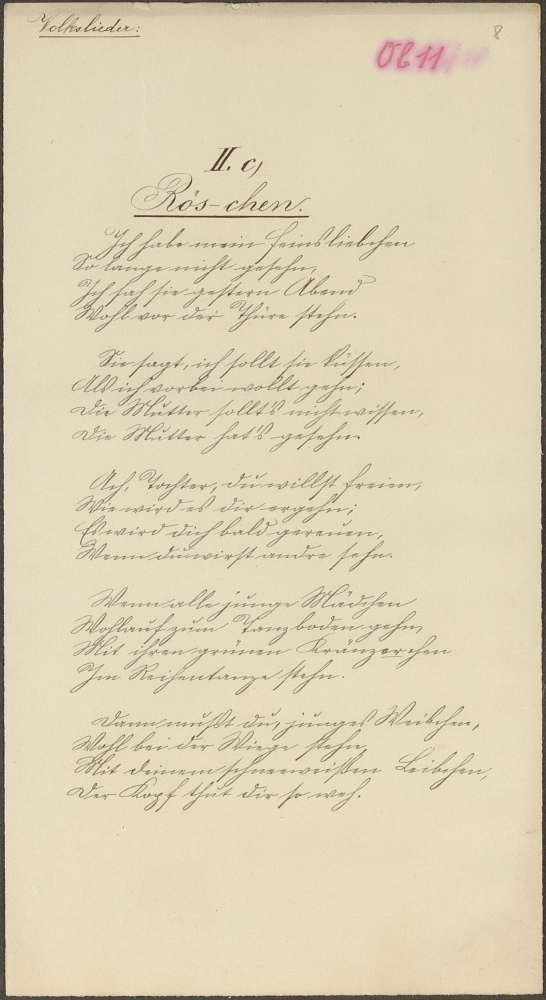 Volkslieder:
8
Ob 11
II. c,
Rös-chen.
Ich habe mein Feinsliebchen
So lange nicht gesehn,
Ich sah sie gestern Abend
Wohl vor der Thüre stehn.
Sie sagt, ich sollt sie küssen,
Als ich vorbei wollt gehn;
Die Mutter sollt's nicht wissen,
Die Mutter hat's gesehn.
Ach, Tochter, du willst freien,
Wie wird es dir ergehn;
Es wird dich bald gereuen,
Wenn du wirst andre sehn.
Wenn alle junge Mädchen
Wohlauf zum Tanzboden gehn,
Mit ihren grünen Kränzerchen
Im Reihentanze stehn.
Dann mußt du, junges Weibchen,
Wohl bei der Wiege stehn,
Mit deinem schneeweißen Leibchen,
Der Kopf thut dir so weh.